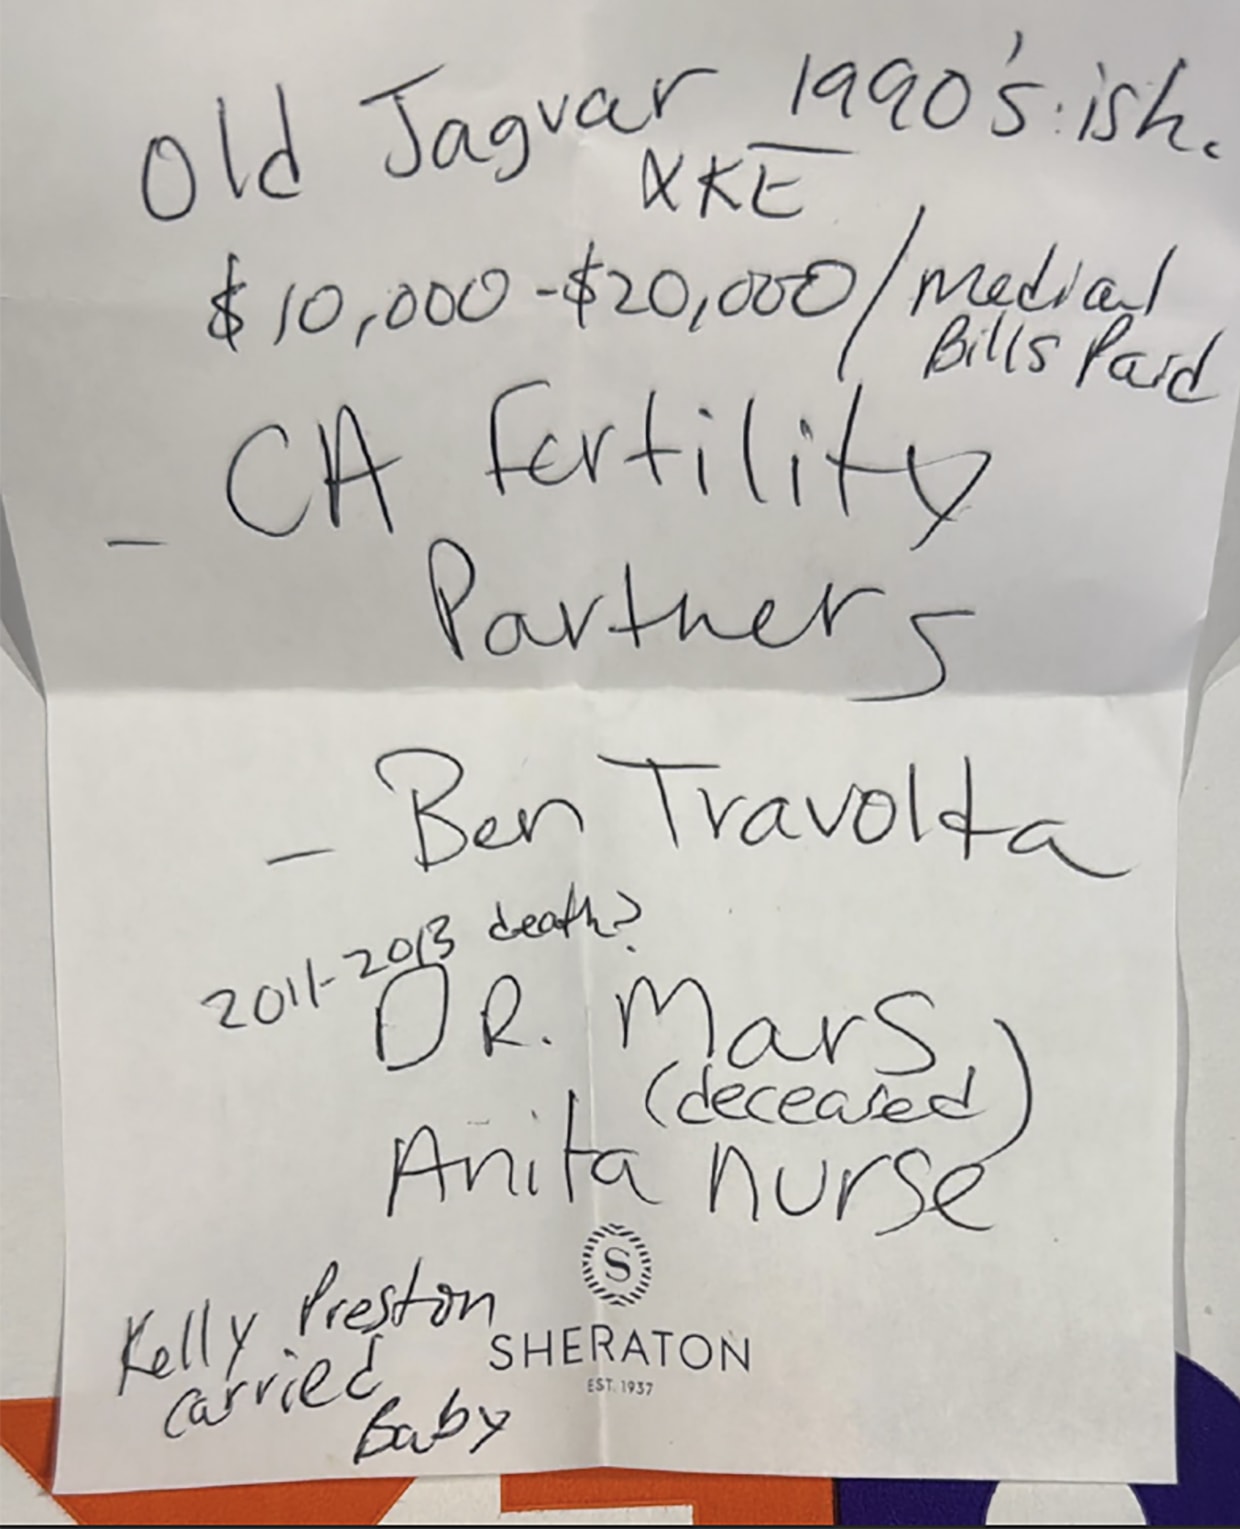 Old Jaguar 1990's ish.
XKE
$10,000 - $20,000 / Medical
Bills Paid
- CA Fertility
Partners
- Ben Travolta
2011-2013 death?
DR. Mars
(deceased)
Anita nurse
S
Kelly Preston
carried
Baby
SHERATON
EST. 1937